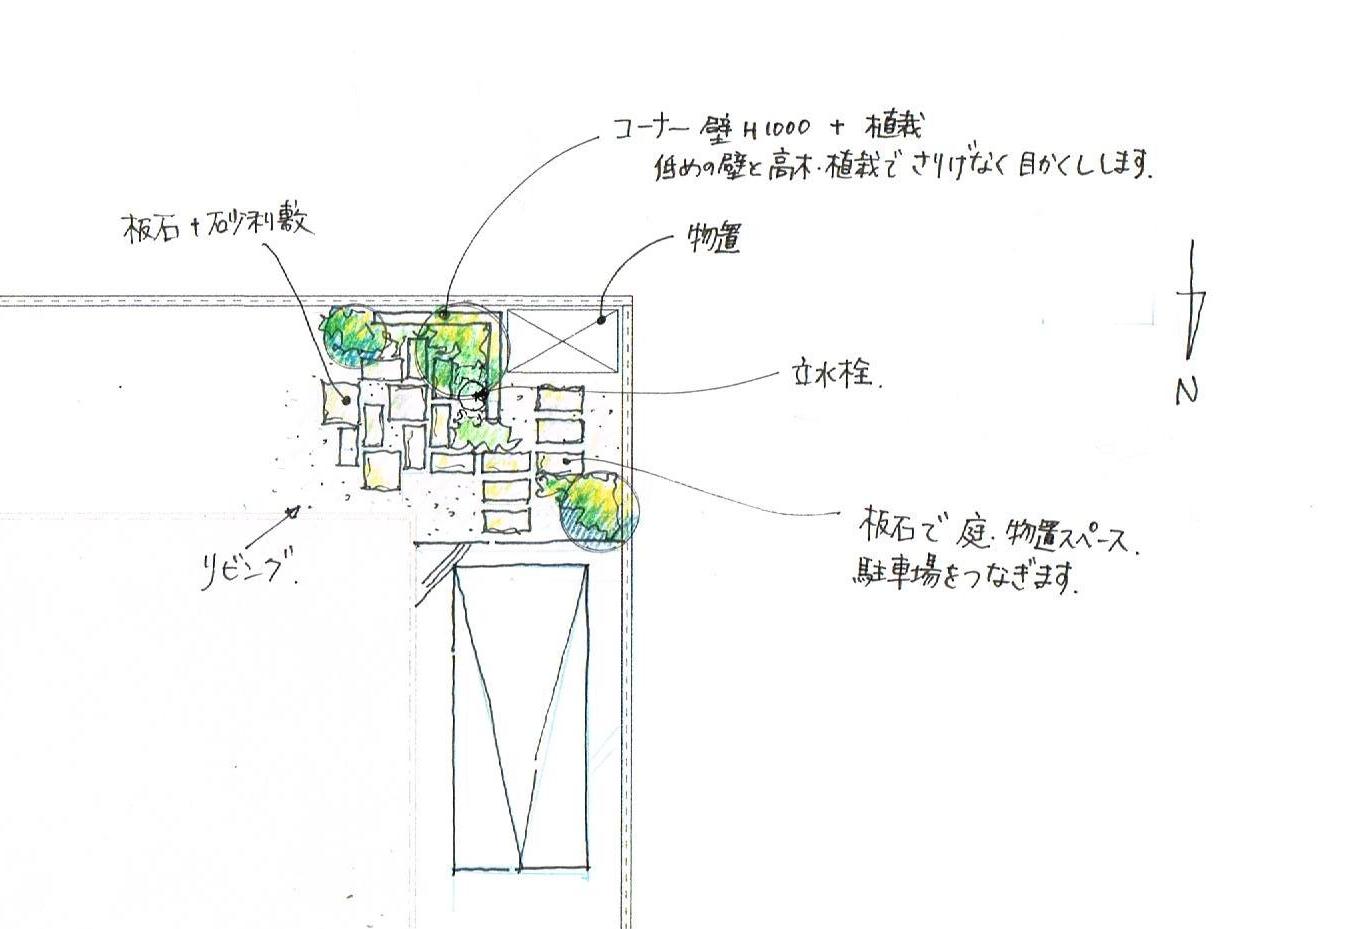 コーナー壁H1000 + 植栽
低めの壁と高木・植栽でさりげなく目かくしします.
板石+砂利敷
物置
立水栓.
N
板石で庭・物置スペース.
駐車場をつなぎます.
リビング.